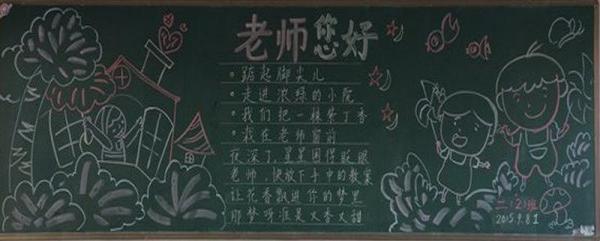 老师您好
·踮起脚尖儿
·走进浓绿的小院
·我们把一棵紫丁香
·栽在老师窗前
夜深了,星星困得眨眼
老师,快放下手中的教案
让花香飘进你的梦里
那梦呀准是又香又甜
二(2)班
2015.9.8